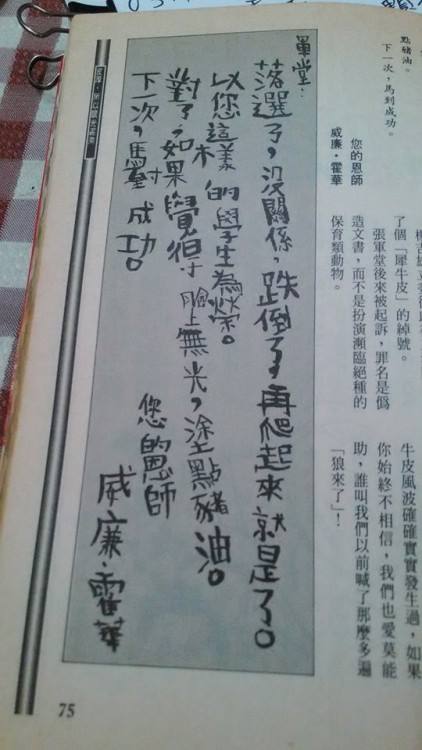 點豬油。
下一次，馬到成功。
您的恩師
威廉・霍華
了個「犀牛皮」的綽號。
張軍堂後來被起訴，罪名是偽
造文書，而不是扮演瀕臨絕種的
保育類動物。
牛皮風波確確實實發生過，如果
你始終不相信，我們也愛莫能
助，誰叫我們以前喊了那麼多遍
「狼來了」！
軍堂：
落選了，沒關係，跌倒了，再爬起來就是了。
以您這樣的學生為榮。
對了，如果覺得臉上無光，塗點豬油。
下一次，馬到成功。
您的恩師
威廉・霍華
75